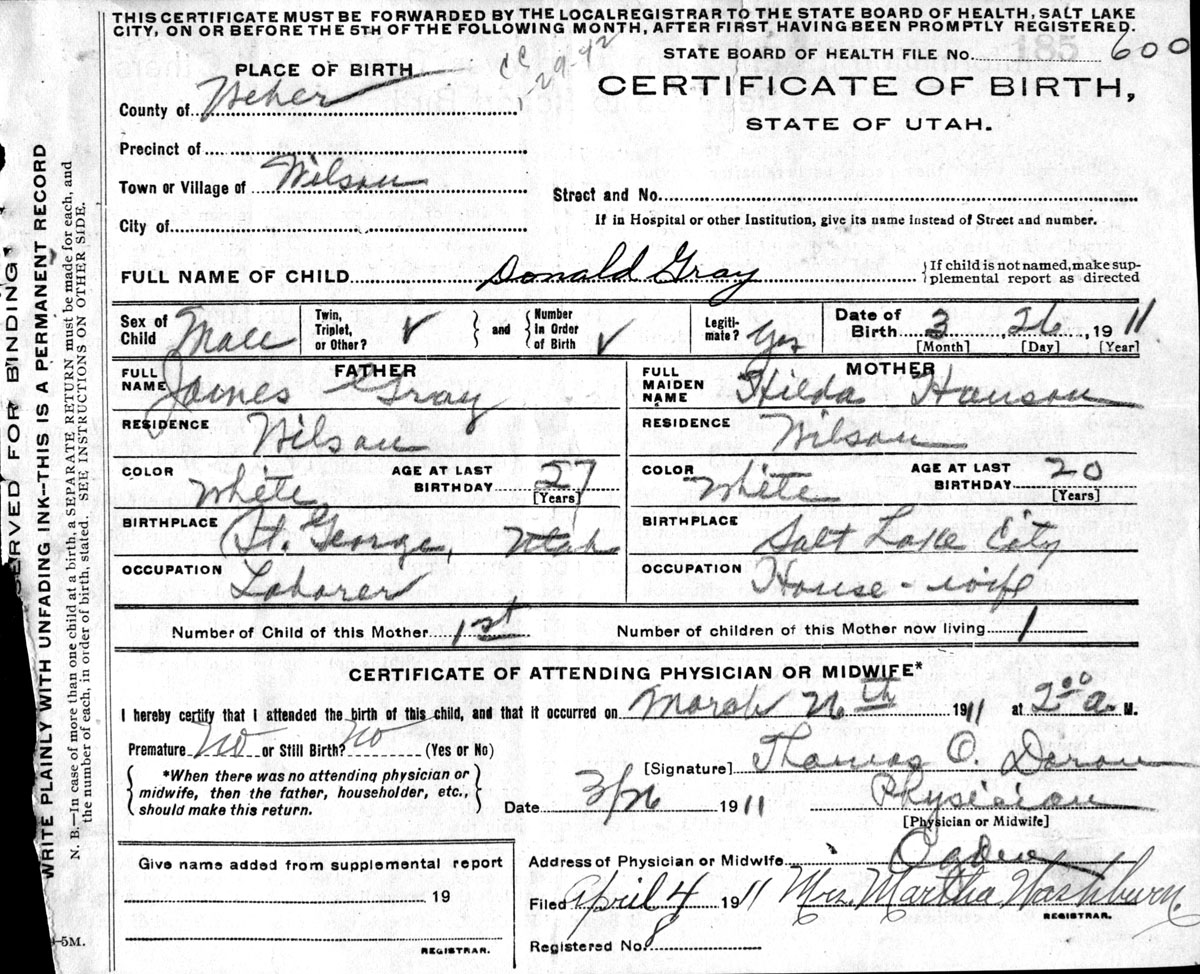 THIS CERTIFICATE MUST BE FORWARDED BY THE LOCAL REGISTRAR TO THE STATE BOARD OF HEALTH, SALT LAKE
CITY, ON OR BEFORE THE 5TH OF THE FOLLOWING MONTH, AFTER FIRST HAVING BEEN PROMPTLY REGISTERED.
STATE BOARD OF HEALTH FILE No. 600
PLACE OF BIRTH
CERTIFICATE OF BIRTH,
STATE OF UTAH.
County of Weber
Precinct of
Town or Village of Wilson
Street and No.
If in Hospital or other Institution, give its name instead of Street and number.
City of
FULL NAME OF CHILD Donald Gray {If child is not named, make sup-
plemental report as directed
Sex of Child Male Twin, Triplet, or Other? ✓ } and { Number in Order of Birth ✓ Legiti-mate? Yes Date of Birth 3, 26, 1911
[Month] [Day] [Year]
FATHER MOTHER
FULL NAME James Gray FULL MAIDEN NAME Hilda Hanson
RESIDENCE Wilson RESIDENCE Wilson
COLOR White AGE AT LAST BIRTHDAY 27 [Years] COLOR White AGE AT LAST BIRTHDAY 20 [Years]
BIRTHPLACE St. George, Utah BIRTHPLACE Salt Lake City
OCCUPATION Laborer OCCUPATION House-wife
Number of Child of this Mother 1st Number of children of this Mother now living 1
CERTIFICATE OF ATTENDING PHYSICIAN OR MIDWIFE*
I hereby certify that I attended the birth of this child, and that it occurred on March 26th 1911 at 2 00 a. M.
Premature No or Still Birth? No (Yes or No)
[Signature] Thomas O.
{*When there was no attending physician or
midwife, then the father, householder, etc.,
should make this return.}
Date 3/26 1911 Physician
[Physician or Midwife]
Give name added from supplemental report
19
REGISTRAR.
Address of Physician or Midwife Ogden
Filed April 4 1911 Mrs. Martha Washburn.
REGISTRAR.
Registered No. 8
-5M.
SERVED FOR BINDING
WRITE PLAINLY WITH UNFADING INK—THIS IS A PERMANENT RECORD
N. B.—In case of more than one child at a birth, a SEPARATE RETURN must be made for each, and
the number of each, in order of birth, stated. SEE INSTRUCTIONS ON OTHER SIDE.